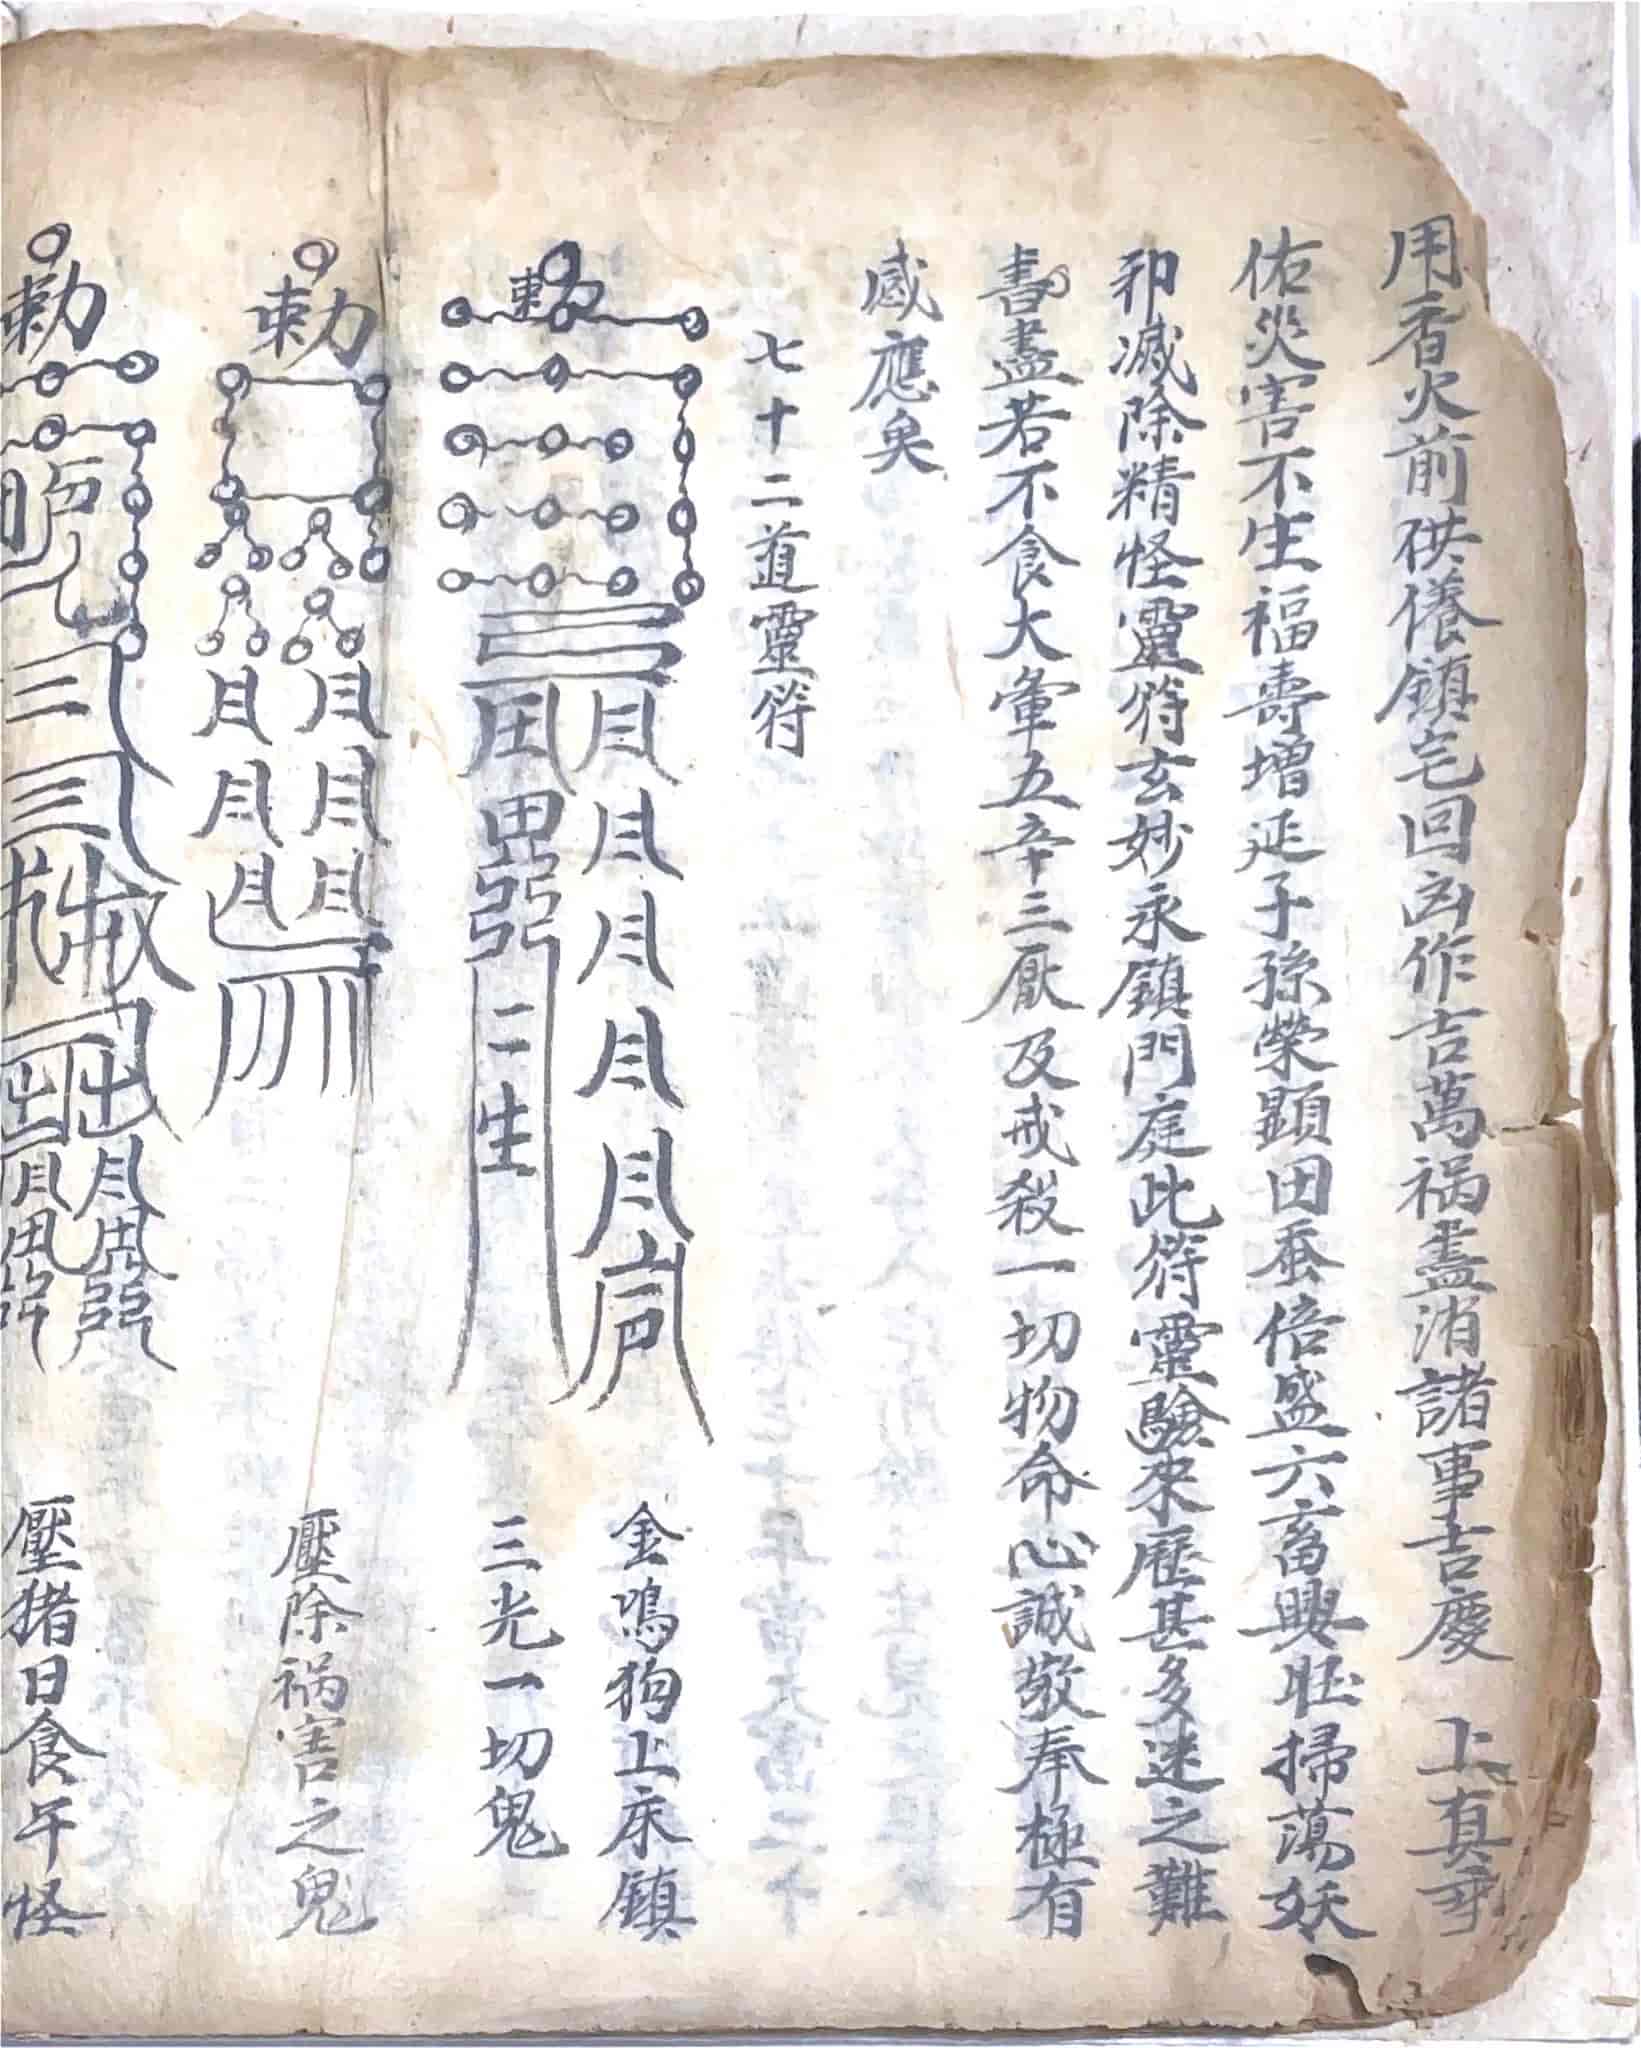 用香火前供養鎮宅回凶作吉萬祸盡消諸事吉慶 上真
佑災害不生福壽增延子孫榮顯田蚕倍盛六畜興旺掃蕩妖
邪滅除精怪靈符玄妙永鎮門庭此符靈驗來歷甚多迷之難
書盡若不食大葷五辛三厭及戒殺一切物命心誠敬奉極有
感應矣
七十二道靈符
勅
金鳴狗上床鎮
三光一切鬼
勅
壓除祸害之鬼
勅
壓猪日食午怪